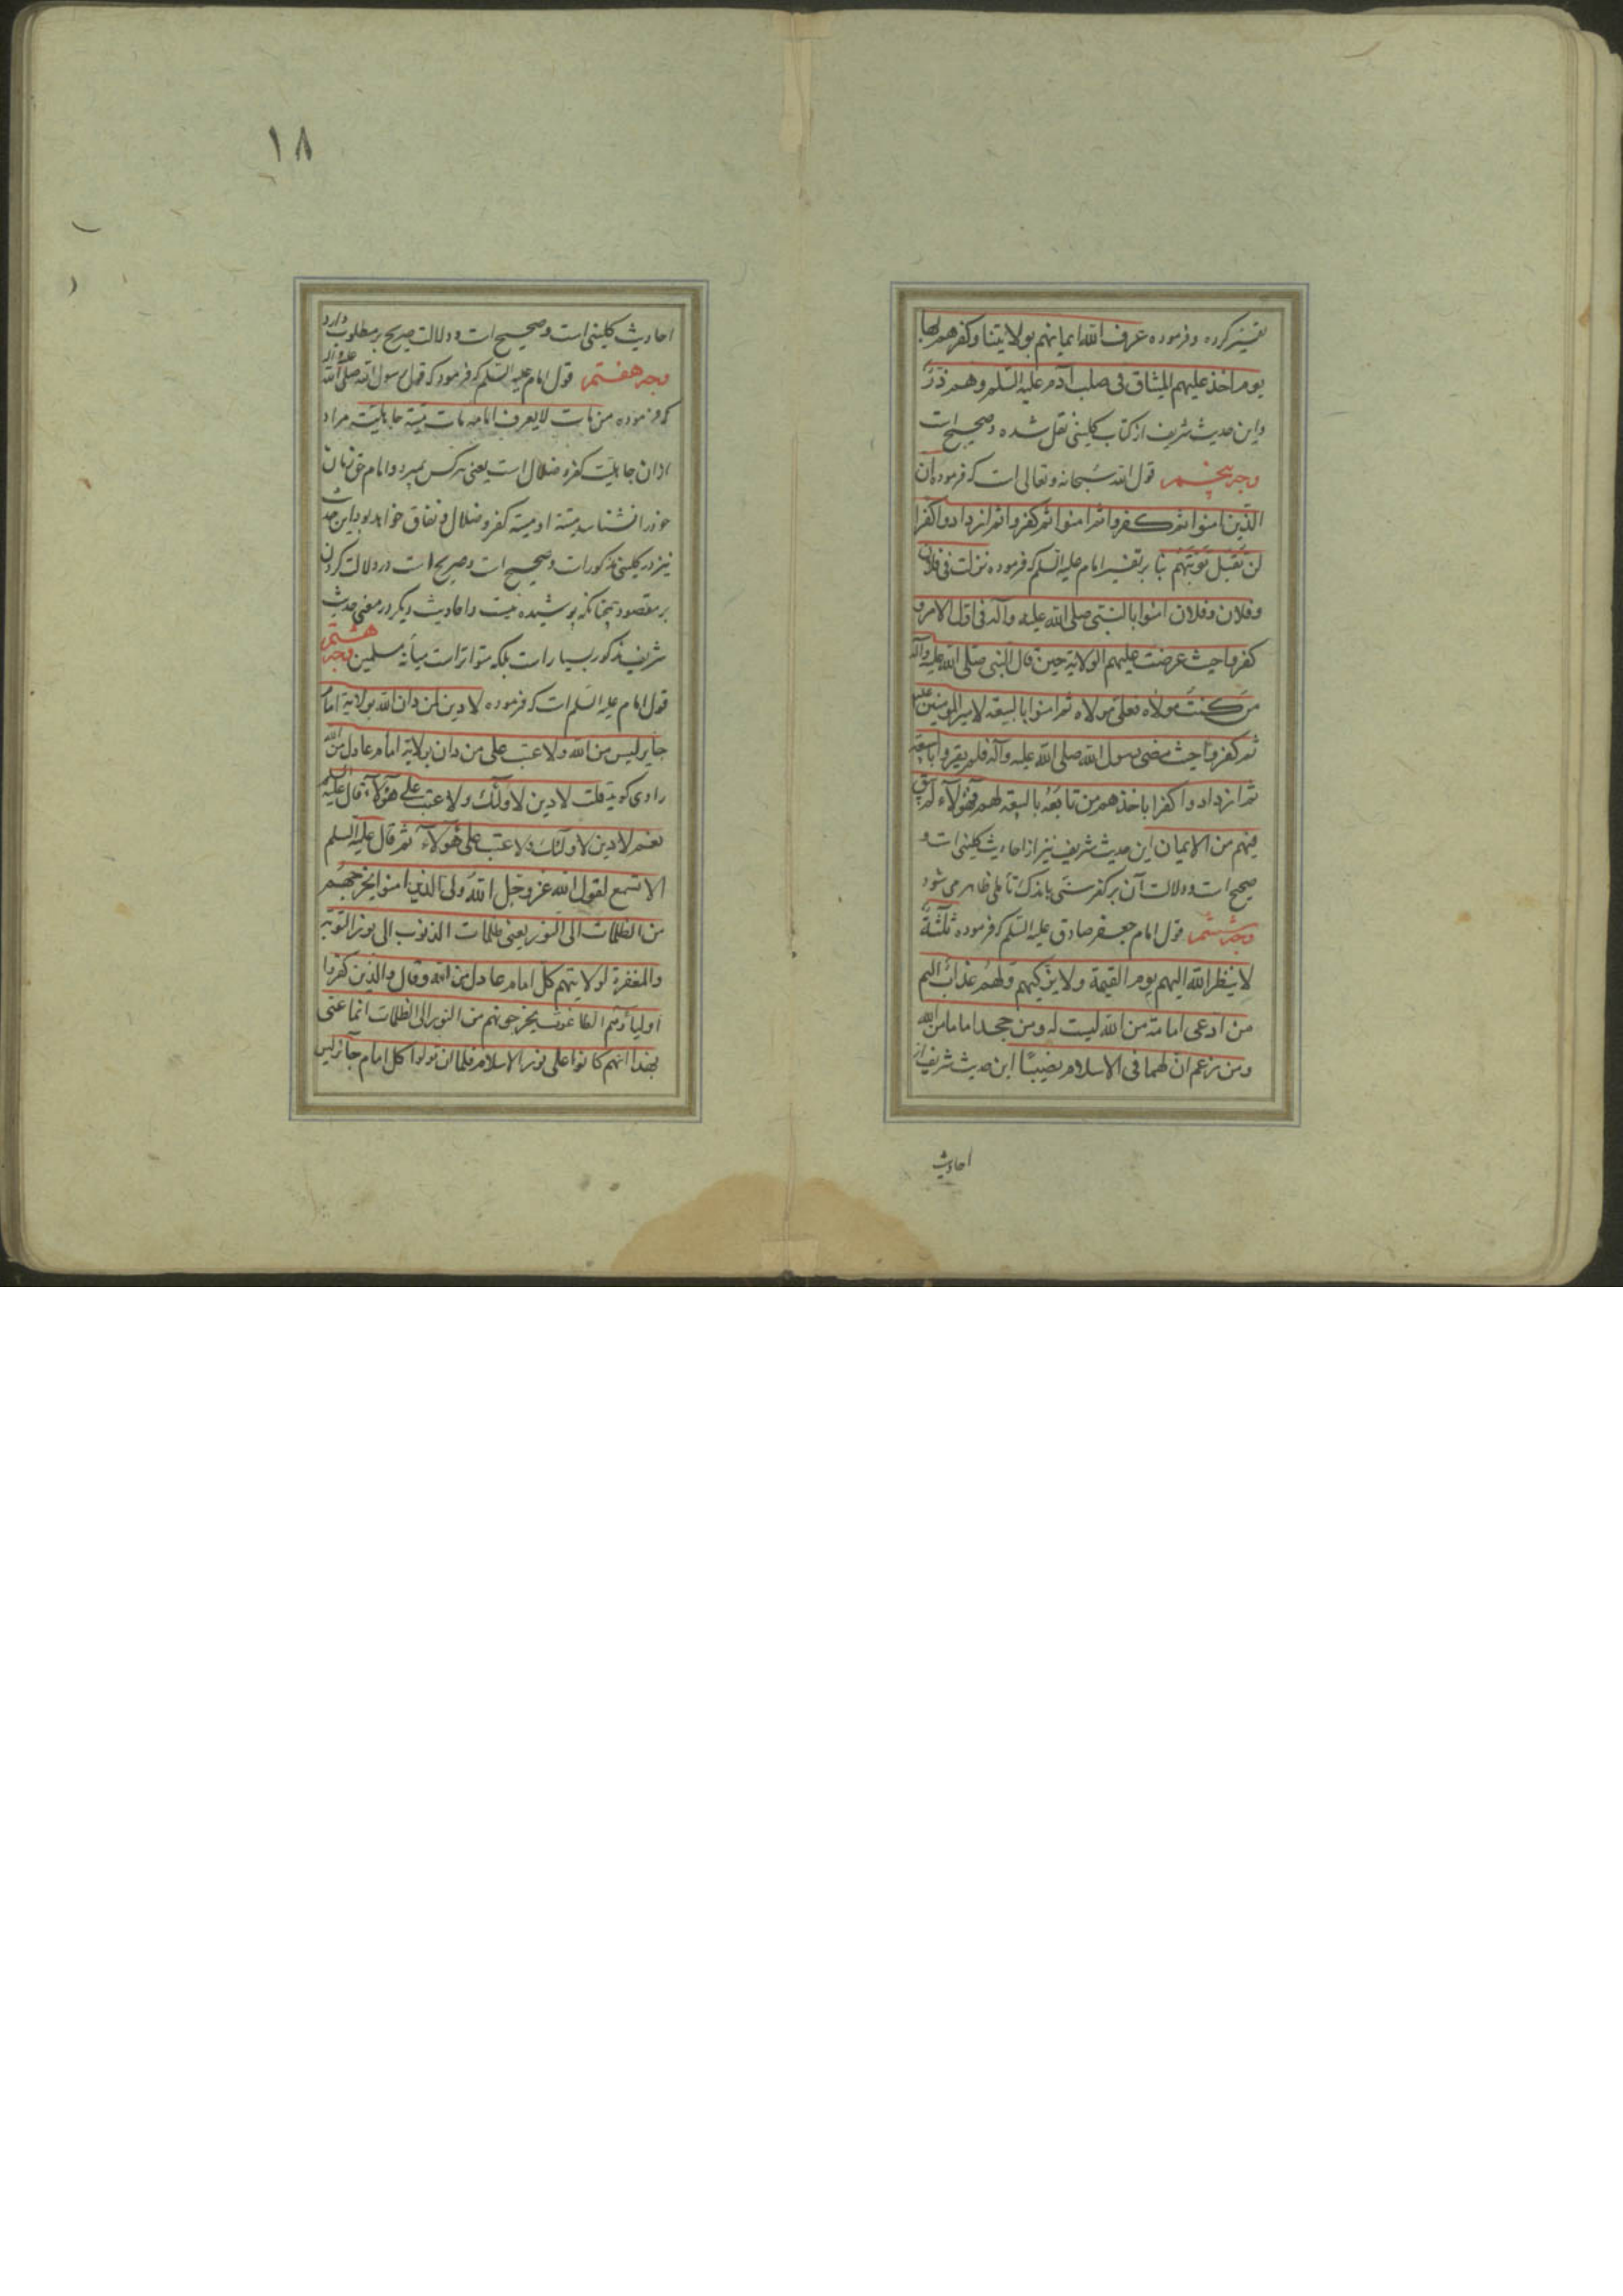 تفسیر کرده و فرموده عرف الله ایمانهم بولایتنا وکفرهم بها
یوم اخذ علیهم المیثاق فی صلب آدم علیه السلم وهم ذرّ
واین حدیث شریف از کتاب کلینی نقل شده و صحیح است
وجه پنجم قول الله سبحانه وتعالی است که فرموده ان
الذین امنوا ثم کفروا ثم امنوا ثم کفروا ثم ازدادوا کفرا
لن تقبل توبتهم بنا بر تفسیر امام علیه السلم که فرموده نزلت فی فلان
وفلان وفلان امنوا بالنبی صلی الله علیه وآله فی اول الامر و
کفروا حیث عرضت علیهم الولایة حین قال النبی صلی الله علیه وآله
من کنت مولاه فعلی مولاه ثم امنوا بالبیعة لامیر المومنین علیه
ثم کفروا حیث مضی رسول الله صلی الله علیه وآله فلم یقروا بالبیعة
ثم ازدادوا کفرا باخذهم من تابعه بالبیعة لهم فهؤلاء لم یبق
فیهم من الایمان این حدیث شریف نیز از احادیث کلینی است و
صحیح است و دلالت آن بر کفر سنی باندک تأملی ظاهر می شود
وجه ششم قول امام جعفر صادق علیه السلم که فرموده ثلثة
لا ینظر الله الیهم یوم القیمة ولا یزکیهم ولهم عذاب الیم
من ادعی امامة من الله لیست له ومن جحد اماما من الله
ومن زعم ان لهما فی الاسلام نصیبًا این حدیث شریف از
احادیث
١٨
احادیث کلینی است و صحیح است و دلالت صریح بر مطلوب دارد
وجه هفتم قول امام علیه السلم که فرمود که قول رسول الله صلی الله علیه وآله
که فرموده من مات لا یعرف امامه مات میتة جاهلیة مراد
از ان جاهلیت کفر و ضلال است یعنی هر کس بمیرد و امام حق زمان
خود را نشناسد میتة او میتة کفر و ضلال و نفاق خواهد بود این حدیث
نیز در کلینی مذکور است و صحیح است و صریح است در دلالت کردن
بر مقصود چنانکه پوشیده نیست و احادیث دیگر در معنی حدیث
شریف مذکور بسیار است بلکه متواتر است میانه مسلمین وجه هشتم
قول امام علیه السلم است که فرموده لا دین لمن دان الله بولایة امام
جایر لیس من الله ولا عتب علی من دان بولایة امام عادل من الله
راوی کوید قلت لا دین لاولئک ولا عتب علی هؤلاء قال علیه السلم
نعم لا دین لاولئک ولا عتب علی هؤلاء ثم قال علیه السلم
الا تسمع لقول الله عز وجل الله ولی الذین امنوا یخرجهم
من الظلمات الی النور یعنی ظلمات الذنوب الی نور التوبة
والمغفرة لولایتهم کل امام عادل من الله وقال والذین کفروا
اولیاؤهم الطاغوت یخرجونهم من النور الی الظلمات انما عنی
بهذا انهم کانوا علی نور الاسلام فلما ان تولوا کل امام جائر لیس